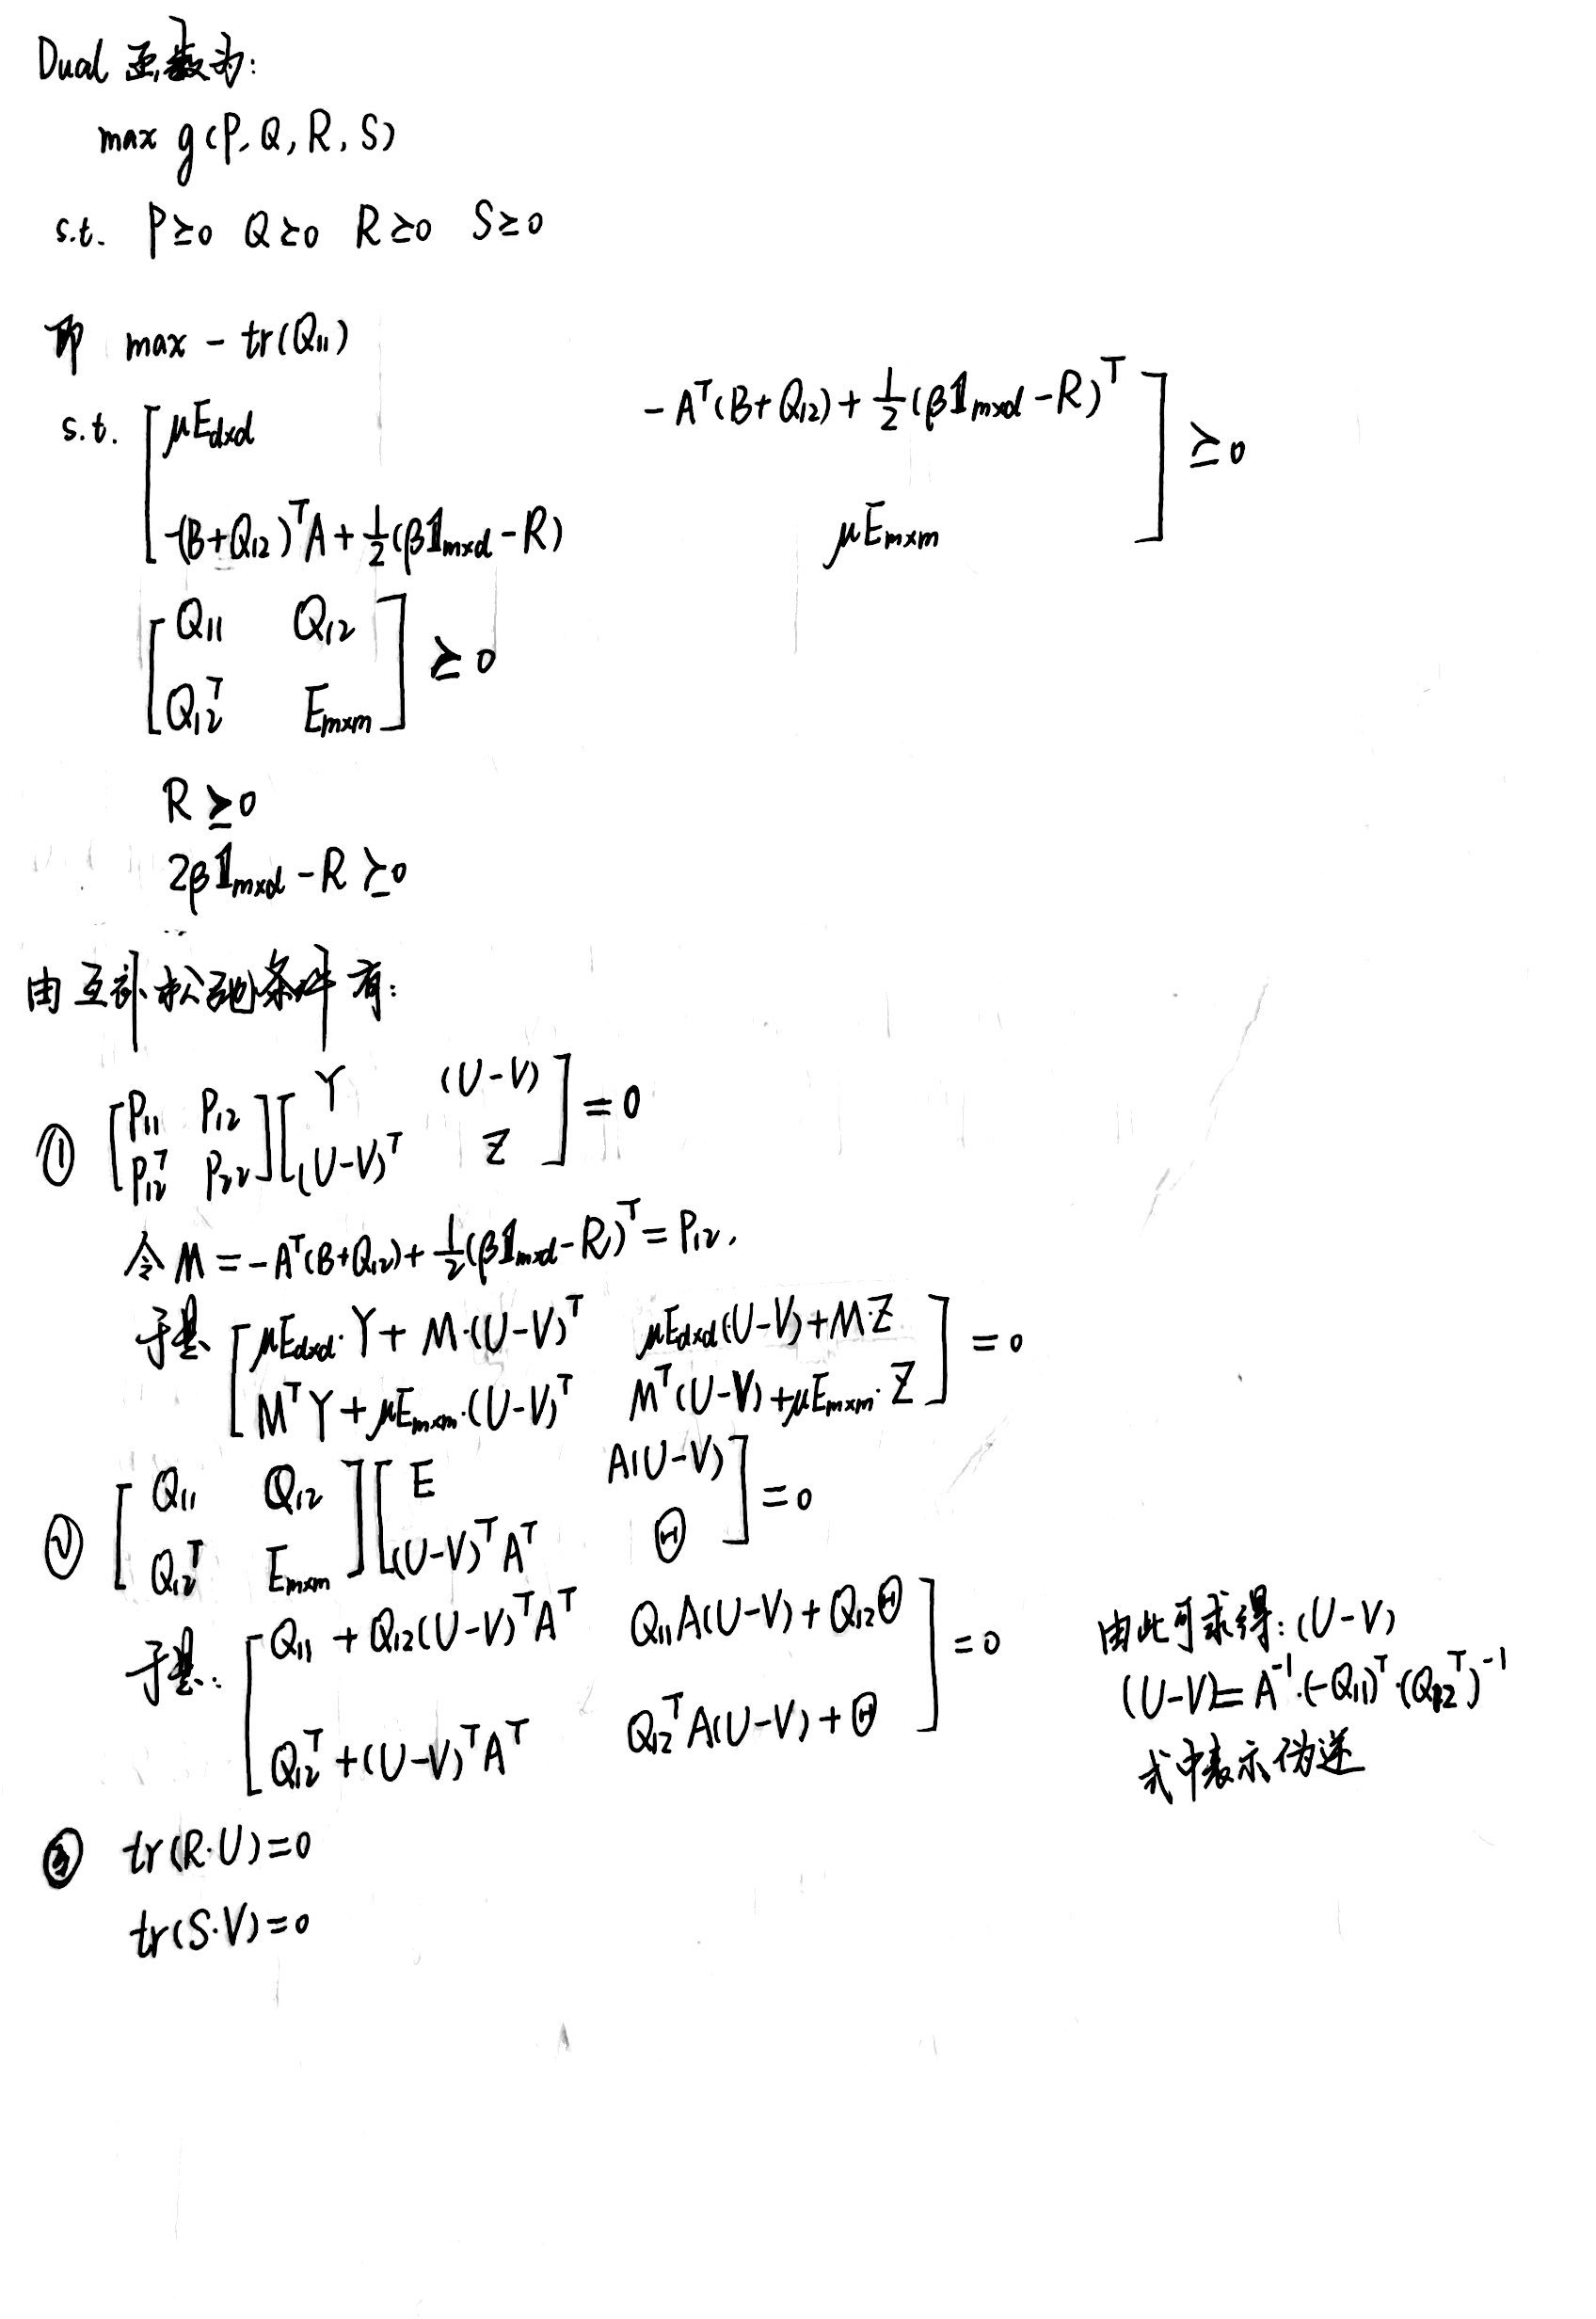 Dual 函数为:
max g(P, Q, R, S)
s.t. P≽0 Q≽0 R≽0 S≽0
即 max - tr(Q₁₁)
s.t. [ μE_{d×d}    -Aᵀ(B+Q₁₂)+½(β𝟙_{m×d}-R)ᵀ
-(B+Q₁₂)ᵀA+½(β𝟙_{m×d}-R)    μE_{m×m} ] ≽0
[ Q₁₁    Q₁₂
Q₁₂ᵀ    E_{m×m} ] ≽0
R≽0
2β𝟙_{m×d}-R≽0
由互补松弛条件有:
① [ P₁₁ P₁₂ ] [ Y    (U-V) ] =0
[ P₁₂ᵀ P₂₂ ] [ (U-V)ᵀ    Z ]
令 M=-Aᵀ(B+Q₁₂)+½(β𝟙_{m×d}-R)ᵀ=P₁₂,
于是 [ μE_{d×d}·Y+M·(U-V)ᵀ    μE_{d×d}(U-V)+M·Z
MᵀY+μE_{m×m}·(U-V)ᵀ    Mᵀ(U-V)+μE_{m×m}·Z ] =0
② [ Q₁₁    Q₁₂ ] [ E    A(U-V) ] =0
[ Q₁₂ᵀ    E_{m×m} ] [ (U-V)ᵀAᵀ    Θ ]
于是: [ Q₁₁+Q₁₂(U-V)ᵀAᵀ    Q₁₁A(U-V)+Q₁₂Θ
Q₁₂ᵀ+(U-V)ᵀAᵀ    Q₁₂ᵀA(U-V)+Θ ] =0
由此可求得:(U-V)
(U-V)=A⁻¹·(-Q₁₁)ᵀ·(Q₁₂ᵀ)⁻¹
式中表示伪逆
③ tr(R·U)=0
tr(S·V)=0